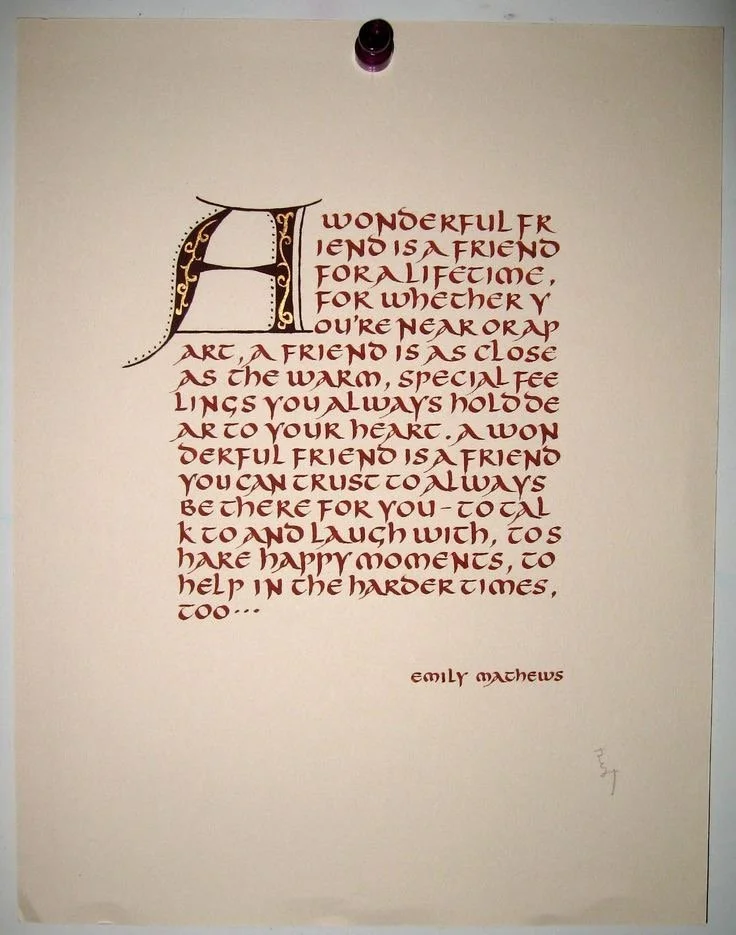 A WONDERFUL FR
IEND IS A FRIEND
FOR A LIFETIME,
FOR WHETHER Y
OU'RE NEAR OR AP
ART, A FRIEND IS AS CLOSE
AS THE WARM, SPECIAL FEE
LINGS YOU ALWAYS HOLD DE
AR TO YOUR HEART. A WON
DERFUL FRIEND IS A FRIEND
YOU CAN TRUST TO ALWAYS
BE THERE FOR YOU - TO TAL
K TO AND LAUGH WITH, TO S
HARE HAPPY MOMENTS, TO
HELP IN THE HARDER TIMES,
TOO...
EMILY MATHEWS